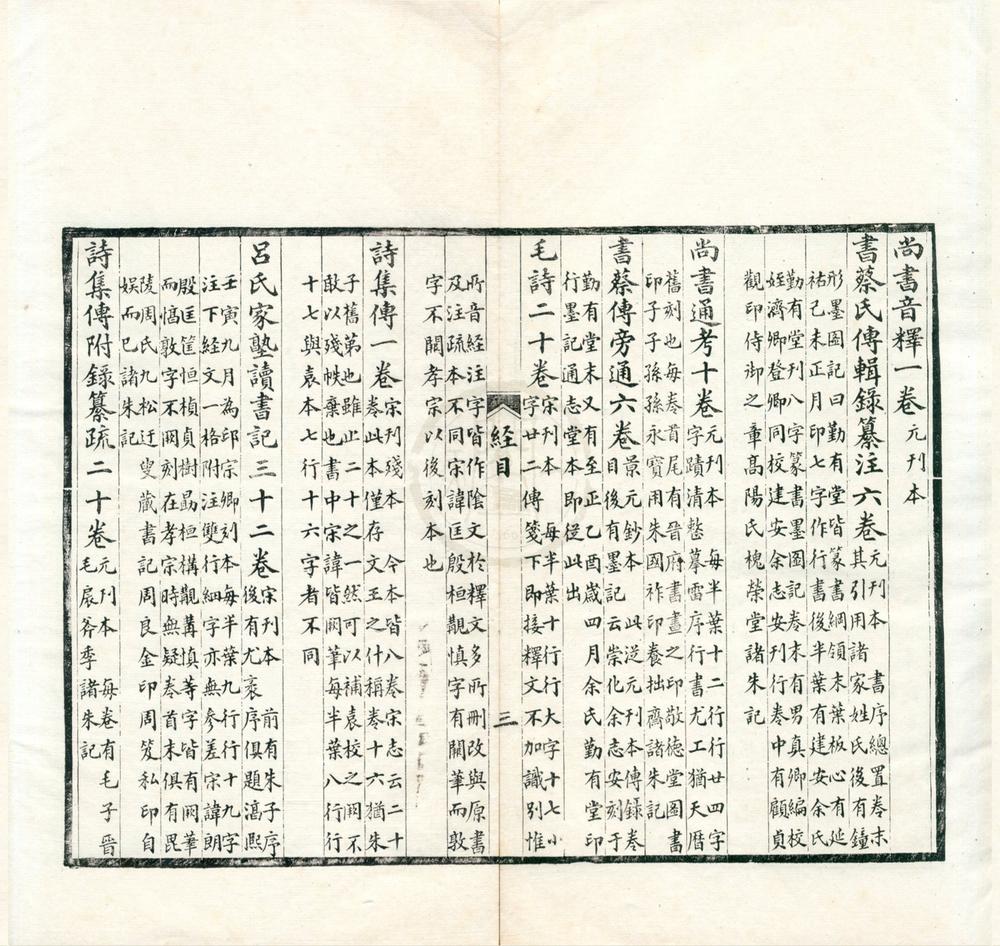 尚書音釋一卷元刊本
書蔡氏傳輯錄纂注六卷元刊本　書序總置卷末
其引用諸家姓氏後有鐘
形墨圖記曰勤有堂皆篆書綱領末葉板心有延
祐己未正月印七字作行書後半葉有建安余氏
勤有堂刊八字篆書墨圖記卷末有男真卿編校
姪濟卿登卿同校建安余志安刊行卷中有顧貞
觀印侍御之章高陽氏槐榮堂諸朱記
尚書通考十卷元刊本　每半葉十二行行廿四字
字蹟清整摹雷序行書尤工猶天曆
舊刻也每卷首尾有晉府書畫之印敬德堂圖書
印子子孫孫永寶用朱國祚印養拙齋諸朱記
書蔡傳旁通六卷景元鈔本　此从元刊本傳錄卷
目後有墨記云崇化余志安刻于
勤有堂末又有至正乙酉歲四月余氏勤有堂印
行墨記通志堂本即從此出
毛詩二十卷宋刊本　每半葉十行行大字十七小
字廿二傳箋下即接釋文不加識別惟
所音經注字皆作陰文於釋文多所刪改與原書
及注疏本不同宋諱匡殷桓覯慎字有闕筆而敦
字不闕孝宗以後刻本也
詩集傳一卷宋刊殘本　今本皆八卷宋志云二十
卷此本僅存文王之什稱卷十六猶朱
子舊第也雖止二十之一然可以補袁校之闕不
敢以殘帙棄也書中宋諱皆闕筆每半葉八行行
十七與袁本七行十六字者不同
呂氏家塾讀書記三十二卷宋刊本　前有朱子序
後有尤袤序俱題淳熙
壬寅九月為邱宗卿刻本每半葉九行行十九字
注下經文一格附注雙行細字亦無參差宋諱朗
殷匡筐恒楨貞樹勗桓構覯溝慎等字皆有闕筆
而惇敦字不闕刻在孝宗時無疑卷首末俱有毘
陵周氏九松迂叟藏書記周良金印周笈私印自
娛而已諸朱記
詩集傳附錄纂疏二十卷元刊本　每卷有毛子晉
毛扆斧季諸朱記
經目
三